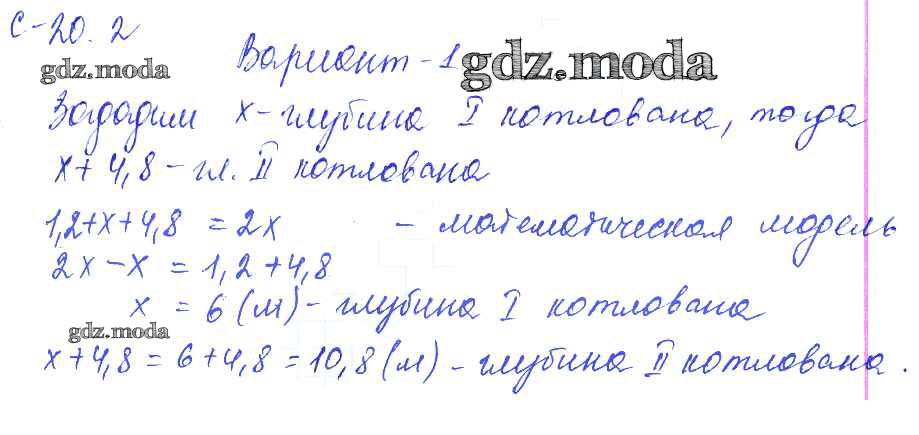 С-20.2
gdz.moda
Вариант-1
gdz.moda
Зададим x - глубина I котлована, тогда
x + 4,8 - гл. II котлована
1,2+x+4,8 = 2x - математическая модель
2x - x = 1,2 + 4,8
x = 6 (м) - глубина I котлована
gdz.moda
x + 4,8 = 6 + 4,8 = 10,8 (м) - глубина II котлована.